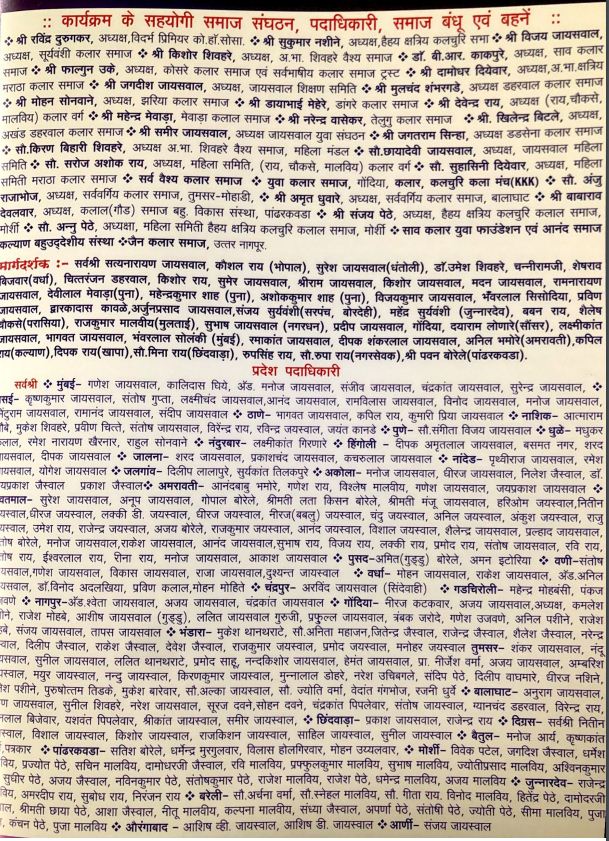 :: कार्यक्रम के सहयोगी समाज संघठन, पदाधिकारी, समाज बंधू एवं बहनें ::
❖ श्री रविंद्र दुरुगकर, अध्यक्ष,विदर्भ प्रिमियर को.हॉ.सोसा. ❖ श्री सुकुमार नशीने, अध्यक्ष,हैहय क्षत्रिय कलचुरि सभा ❖ श्री विजय जायसवाल,
अध्यक्ष, सूर्यवंशी कलार समाज ❖ श्री किशोर शिवहरे, अध्यक्ष, अ.भा. शिवहरे वैश्य समाज ❖ डॉ. बी.आर. काकपुरे, अध्यक्ष, साव कलार
समाज ❖ श्री फाल्गुन उके, अध्यक्ष, कोसरे कलार समाज एवं सर्वभाषीय कलार समाज ट्रस्ट ❖ श्री दामोधर दियेवार, अध्यक्ष,अ.भा.क्षत्रिय
मराठा कलार समाज ❖ श्री जगदीश जायसवाल, अध्यक्ष, जायसवाल शिक्षण समिति ❖ श्री मुलचंद शंभरगडे, अध्यक्ष डहरवाल कलार समाज
❖ श्री मोहन सोनवाने, अध्यक्ष, झरिया कलार समाज ❖ श्री डायाभाई मेहेरे, डांगरे कलार समाज ❖ श्री देवेन्द्र राय, अध्यक्ष (राय,चौकसे,
मालविय) कलार वर्ग ❖ श्री महेन्द्र मेवाड़ा, मेवाड़ा कलाल समाज ❖ श्री नरेन्द्र वासेकर, तेलुगु कलार समाज ❖ श्री. खिलेन्द्र बिटले, अध्यक्ष,
अखंड डहरवाल कलार समाज ❖ श्री समीर जायसवाल, अध्यक्ष जायसवाल युवा संघठन ❖ श्री जगतराम सिन्हा, अध्यक्ष डडसेना कलार समाज
❖ सौ.किरण बिहारी शिवहरे, अध्यक्ष अ.भा. शिवहरे वैश्य समाज, महिला मंडल ❖ सौ.छायादेवी जायसवाल, अध्यक्ष, जायसवाल महिला
समिति ❖ सौ. सरोज अशोक राय, अध्यक्ष, महिला समिति, (राय, चौकसे, मालविय) कलार वर्ग ❖ सौ. सुहासिनी दियेवार, अध्यक्ष, महिला
समिती मराठा कलार समाज ❖ सर्व वैश्य कलार समाज ❖ युवा कलार समाज, गोंदिया, कलार, कलचुरि कला मंच(KKK) ❖ सौ. अंजु
राजाभोज, अध्यक्ष, सर्ववर्गिय कलार समाज, तुमसर-मोहाडी. ❖ श्री अमृत धुवारे, अध्यक्ष, सर्ववर्गिय कलार समाज, बालाघाट ❖ श्री बाबाराव
देवलवार, अध्यक्ष, कलाल(गौड) समाज बहु. विकास संस्था, पांढरकवडा ❖ श्री संजय पेठे, अध्यक्ष, हैहय क्षत्रिय कलचुरि कलाल समाज,
मोर्शी ❖ सौ. अन्नु पेठे, अध्यक्ष, महिला समिती हैहय क्षत्रिय कलचुरि कलाल समाज, मोर्शी ❖ साव कलार युवा फाउंडेशन एवं आनंद समाज
कल्याण बहुउद्देशीय संस्था ❖जैन कलार समाज, उत्तर नागपूर.
मार्गदर्शक :– सर्वश्री सत्यनारायण जायसवाल, कौशल राय (भोपाल), सुरेश जायसवाल(धंतोली), डॉ.उमेश शिवहरे, चन्नीरामजी, शेषराव
बिजवार(वर्धा), चित्तरंजन डहरवाल, किशोर राय, सुमेर जायसवाल, श्रीराम जायसवाल, किशोर जायसवाल, मदन जायसवाल, रामनारायण
जायसवाल, देवीलाल मेवाड़ा(पुना), महेन्द्रकुमार शाह (पुना), अशोककुमार शाह (पुना), विजयकुमार जायसवाल, भँवरलाल सिसोदिया, प्रविण
जायसवाल, द्वारकादास कावळे,अर्जुनप्रसाद जायसवाल,संजय सुर्यवंशी(सरपंच, बोरदेही), महेंद्र सुर्यवंशी (जुन्नारदेव), बबन राय, शैलेष
चौकसे(परासिया), राजकुमार मालवीय(मुलताई), सुभाष जायसवाल (नगरधन), प्रदीप जायसवाल, गोंदिया, दयाराम लोणारे(सौंसर), लक्ष्मीकांत
जायसवाल, भागवत जायसवाल, भंवरलाल सोलंकी (मुंबई), रमाकांत जायसवाल, दीपक शंकरलाल जायसवाल, अनिल भमोरे(अमरावती),कपिल
राय(कल्याण),दिपक राय(खापा),सौ.मिना राय(छिंदवाड़ा), रुपसिंह राय, सौ.रुपा राय(नगरसेवक),श्री पवन बोरेले(पांढरकवडा).
प्रदेश पदाधिकारी
सर्वश्री ❖ मुंबई– गणेश जायसवाल, कालिदास घिये, अॅड. मनोज जायसवाल, संजीव जायसवाल, चंद्रकांत जायसवाल, सुरेन्द्र जायसवाल, ❖
कृष्णकुमार जायसवाल, संतोष गुप्ता, लक्ष्मीचंद जायसवाल,आनंद जायसवाल, रामविलास जायसवाल, विनोद जायसवाल, मनोज जायसवाल,
जायसवाल, रामानंद जायसवाल, संदीप जायसवाल ❖ ठाणे– भागवत जायसवाल, कपिल राय, कुमारी प्रिया जायसवाल ❖ नाशिक– आत्माराम
मुकेश शिवहरे, प्रवीण चित्ते, संतोष जायसवाल, विरेंन्द्र राय, रविन्द्र जयस्वाल, जयंत कानडे ❖ पुणे– सौ.संगीता विजय जायसवाल ❖ धुळे– मधुकर
रमेश नारायण खैरनार, राहुल सोनवाने ❖ नंदुरबार– लक्ष्मीकांत गिरणारे ❖ हिंगोली – दीपक अमृतलाल जायसवाल, बसमत नगर, शरद
दीपक जायसवाल ❖ जालना– शरद जायसवाल, प्रकाशचंद जायसवाल, कचरुलाल जायसवाल ❖ नांदेड– पृथ्वीराज जायसवाल, रमेश
योगेश जायसवाल ❖ जलगांव– दिलीप लालापुरे, सुर्यकांत तिलकपुरे ❖ अकोला– मनोज जायसवाल, धीरज जायसवाल, निलेश जैस्वाल, डॉ.
जयप्रकाश जैस्वाल प्रकाश जैस्वाल❖ अमरावती– आनंदबाबु भमोरे, गणेश राय, विश्लेष मालवीय, गणेश जायसवाल, जयप्रकाश जायसवाल ❖
सुरेश जायसवाल, अनूप जायसवाल, गोपाल बोरेले, श्रीमती लता किसन बोरेले, श्रीमती मंजू जायसवाल, हरिओम जयस्वाल,नितीन
धीरज जयस्वाल, लक्की डी. जयस्वाल, धीरज जयस्वाल, नीरज(बबलु) जयस्वाल, चंदु जयस्वाल, अनिल जयस्वाल, अंकुश जयस्वाल, राजु
उमेश राय, राजेन्द्र जयस्वाल, अजय बोरेले, राजकुमार जयस्वाल, आनंद जयस्वाल, विशाल जयस्वाल, शैलेन्द्र जयस्वाल, प्रल्हाद जयस्वाल,
बोरेले, मनोज जायसवाल,राकेश जायसवाल, आनंद जायसवाल,सुभाष राय, विजय राय, लक्की राय, प्रमोद राय, संतोष जायसवाल, रवि राय,
राय, ईश्वरलाल राय, रीना राय, मनोज जायसवाल, आकाश जायसवाल ❖ पुसद–अमित(गुड्डु) बोरेले, अमन इटोरिया ❖ वणी–संतोष
गणेश जायसवाल, विकास जायसवाल, राजा जायसवाल,दुश्यन्त जायसवाल ❖ वर्धा– मोहन जायसवाल, राकेश जायसवाल, अॅड.अनिल
डॉ.विनोद अदलखिया, प्रविण कलाल,मोहन मोहिते ❖ चंद्रपुर– अरविंद जायसवाल (सिंदेवाही) ❖ गडचिरोली– महेन्द्र मोहबंसी, पंकज
❖ नागपुर–अॅड.श्वेता जायसवाल, अजय जायसवाल, चंद्रकांत जायसवाल ❖ गोंदिया– नीरज कटकवार, अजय जायसवाल,अध्यक्ष, कमलेश
राजेश मोहबे, आशीष जायसवाल (गुड्डु), ललित जायसवाल गुरुजी, प्रफुल्ल जायसवाल, त्रंबक जरोदे, गणेश उजवणे, अनिल पशीने, राजेश
संजय जायसवाल, तापस जायसवाल ❖ भंडारा– मुकेश थानथराटे, सौ.अमिता महाजन,जितेन्द्र जैस्वाल, राजेन्द्र जैस्वाल, शैलेश जैस्वाल, नरेन्द्र
दिलीप जैस्वाल, राकेश जैस्वाल, देवेश जैस्वाल, राजकुमार जयस्वाल, प्रमोद जयस्वाल, मनोहर जयस्वाल तुमसर– शंकर जायसवाल, नंदू
सुनील जायसवाल, ललित थानथराटे, प्रमोद साहू, नन्दकिशोर जायसवाल, हेमंत जायसवाल, प्रा. निर्जेश वर्मा, अजय जायसवाल, अम्बरिश
मयुर जायसवाल, नन्दु जायसवाल, किरणकुमार जायसवाल, मुन्नालाल डोहरे, नरेश उचिबगले, संदिप पेठे, दिलीप वाघमारे, धीरज नशिने,
पशीने, पुरुषोत्तम तिडके, मुकेश बारेवार, सौ.अल्का जायसवाल, सौ. ज्योति वर्मा, वेदांत गंगभोज, रजनी धुर्वे ❖ बालाघाट– अनुराग जायसवाल,
सुनील शिवहरे, नरेश जायसवाल, सूरज दवने,सोहन दवने, चन्द्रकांत पिपलेवार, संतोष जायसवाल, ग्यानचंद डहरवाल, विरेन्द्र राय,
बिजेवार, यशवंत पिपलेवार, श्रीकांत जायसवाल, समीर जायसवाल, ❖ छिंदवाड़ा– प्रकाश जायसवाल, राजेन्द्र राय ❖ दिग्रस– सर्वश्री नितीन
विशाल जायसवाल, किशोर जायसवाल, राजकिशन जायसवाल, साहिल जायसवाल, सुमील जायसवाल ❖ बैतुल– मनोज आर्य, कृष्णकांत
❖ पांढरकवडा– सतिश बोरेले, धर्मेन्द्र मुरगुलवार, विलास होलगिरवार, मोहन उय्यलवार, ❖ मोर्शी– विवेक पटेल, जगदिश जैस्वाल, धर्मेश
प्रज्योत पेठे, सचिन मालविय, दामोधरजी जैस्वाल, रवि मालविय, प्रफ्फुलकुमार मालविय, सुभाष मालविय, ज्योतीप्रसाद मालविय, अश्विनकुमार
सुधीर पेठे, अजय जैस्वाल, नविनकुमार पेठे, संतोषकुमार पेठे, राजेश मालविय, राजेश पेठे, धमेन्द्र मालविय, अजय मालविय ❖ जुन्नारदेव– राजेन्द्र
अमरदीप राय, सुबोध राय, निरंजन राय ❖ बरेली– सौ.अर्चना वर्मा, सौ.स्नेहल मालविय, सौ. गीता राय. विनोद मालविय, हितेंद्र पेठे, दामोदरजी
श्रीमती छाया पेठे, आशा जैस्वाल, नीतू मालवीय, कल्पना मालवीय, संध्या जैस्वाल, अपर्णा पेठे, संतोषी पेठे, ज्योती पेठे, सीमा मालविय, पुजा
कंचन पेठे, पुजा मालविय ❖ औरंगाबाद – आशिष व्ही. जायस्वाल, आशिष डी. जायस्वाल ❖ आर्णी– संजय जायस्वाल